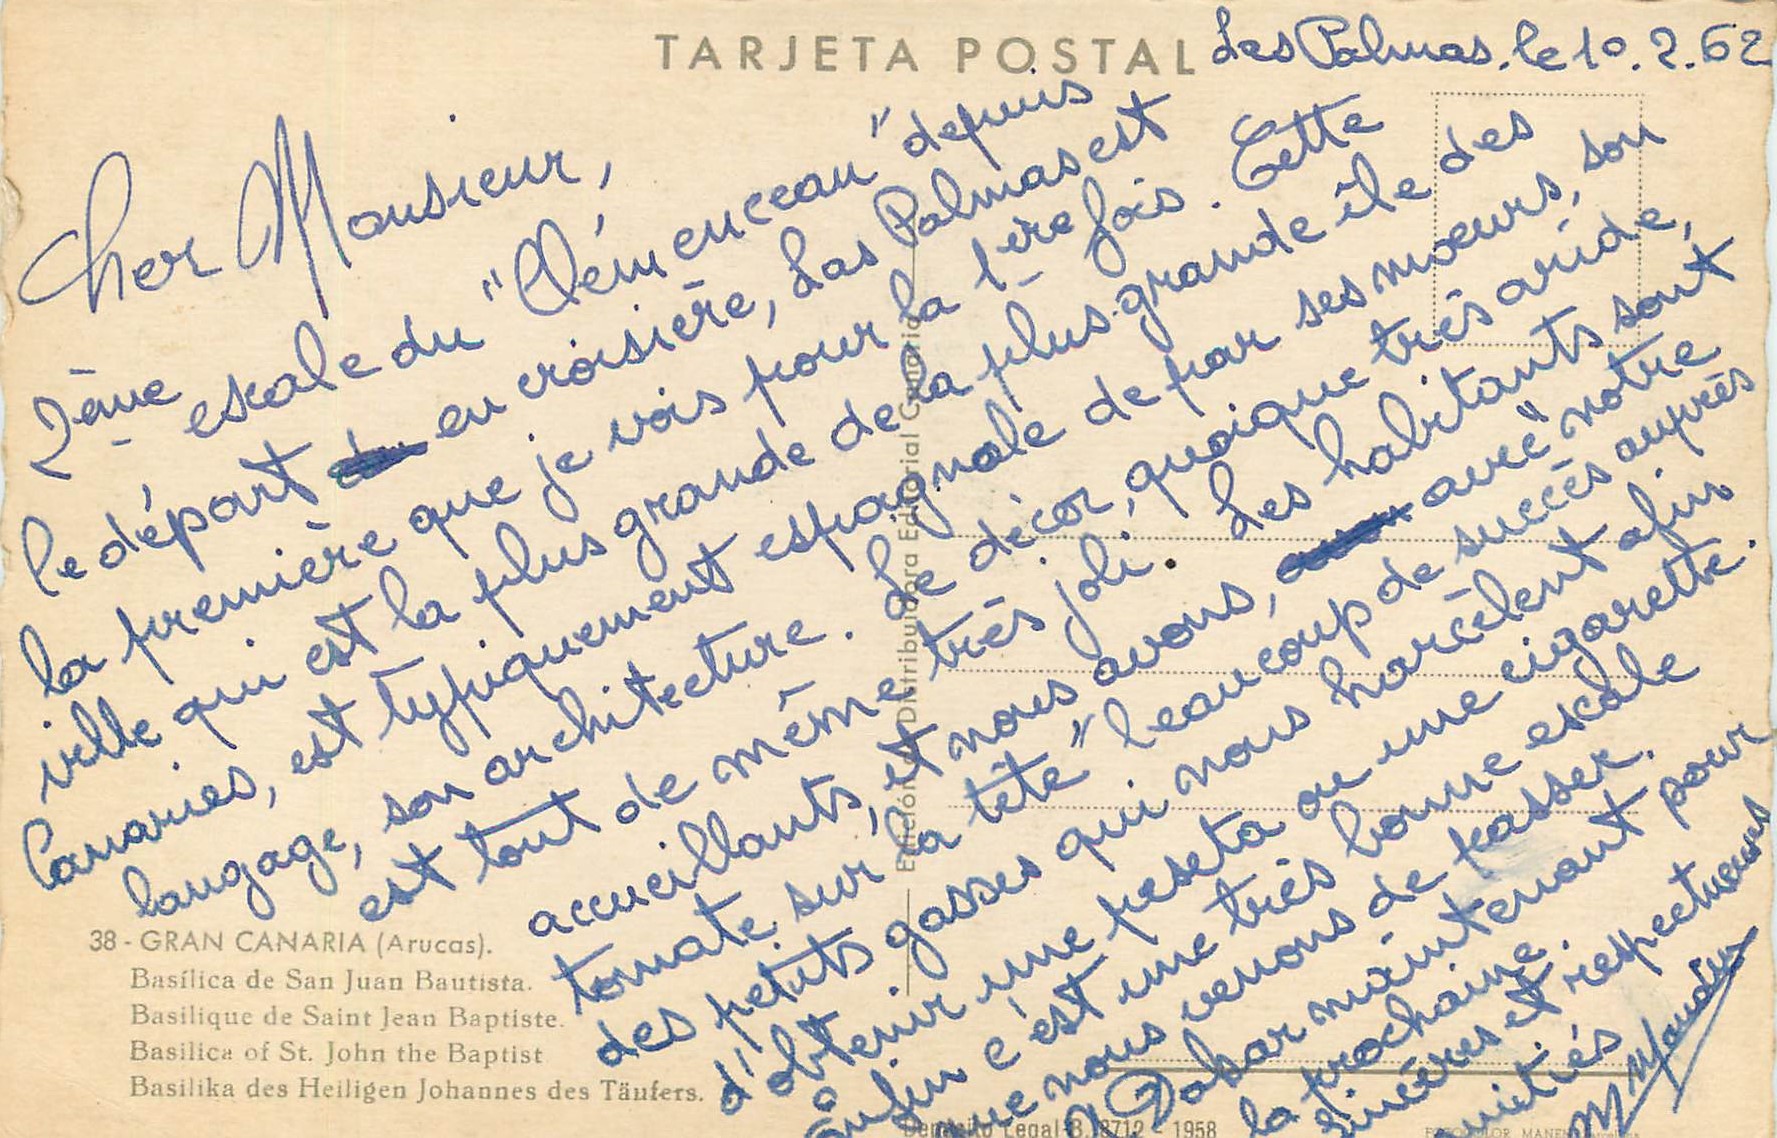 TARJETA POSTAL
Las Palmas. le 10.2.62
Cher Monsieur,
2ème escale du "Clémenceau" depuis
le départ en croisière, Las Palmas est
la première que je vois pour la 1ère fois. Cette
ville qui est la plus grande de la plus grande île des
Canaries, est typiquement espagnole de par ses moeurs, son
langage, son architecture. Le décor, quoique très aride,
est tout de même très joli. Les habitants sont
accueillants, et nous avons, avec "notre
tomate sur la tête" beaucoup de succès auprès
des petits gosses qui nous harcèlent afin
d'obtenir une peseta ou une cigarette.
Enfin c'est une très bonne escale
que nous venons de passer.
Dakar maintenant pour
la prochaine.
Sincères et respectueuses
amitiés
Edición Distribuidora Editorial Canaria
38 - GRAN CANARIA (Arucas).
Basílica de San Juan Bautista.
Basilique de Saint Jean Baptiste.
Basilica of St. John the Baptist
Basilika des Heiligen Johannes des Täufers.
Depósito Legal B. 8712 - 1958